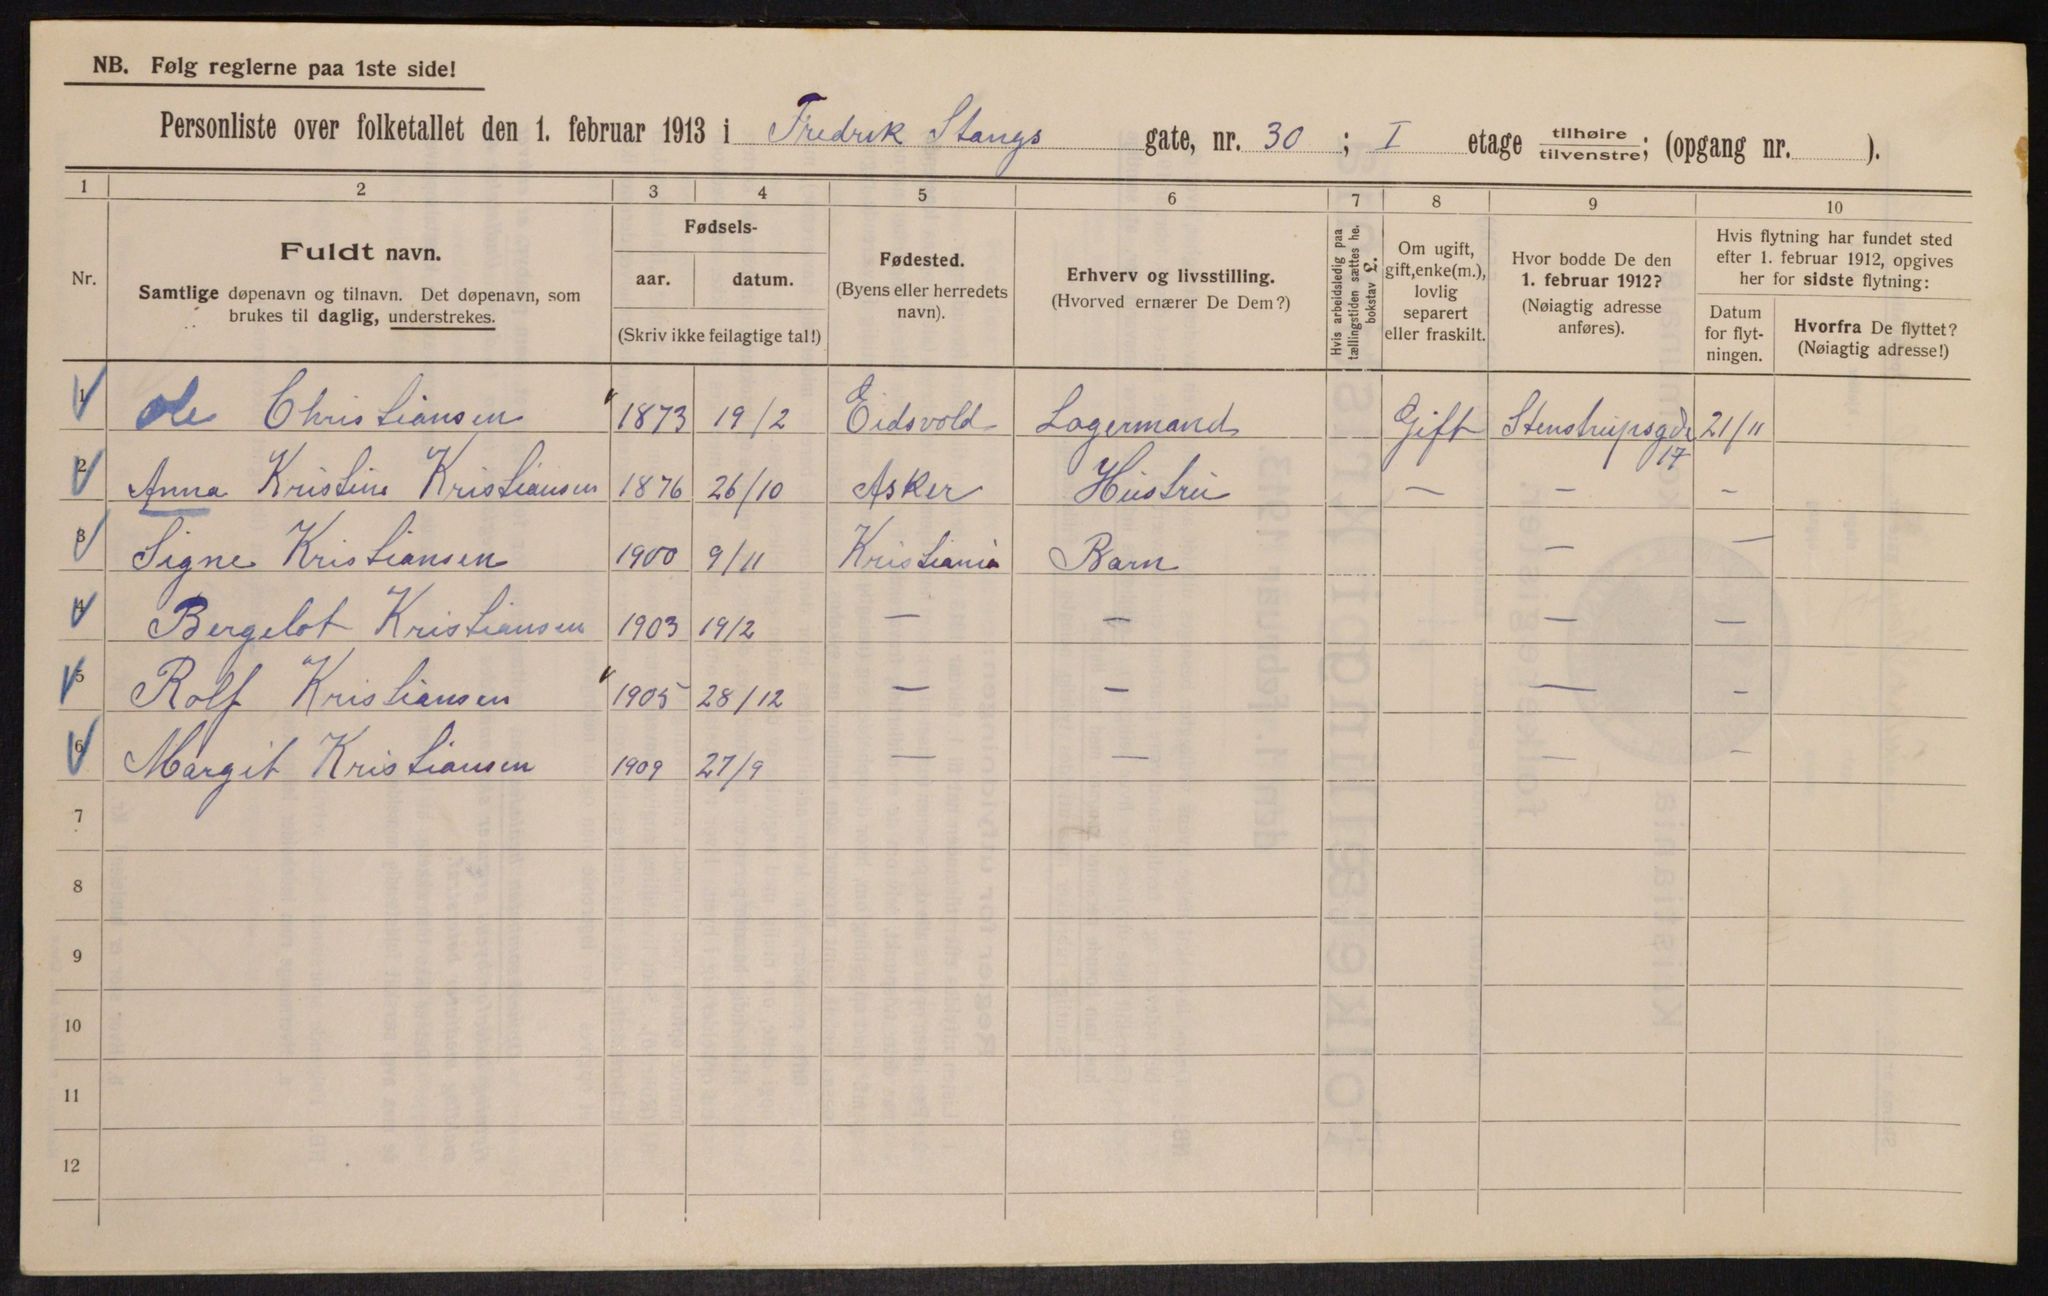 NB. Følg reglerne paa 1ste side!
Personliste over folketallet den 1. februar 1913 i Fredrik Stangs gate, nr. 30 ; I etage tilhøire/tilvenstre; (opgang nr. ).
1 2 3 4 5 6 7 8 9 10
Nr.
Fuldt navn.
Samtlige døpenavn og tilnavn. Det døpenavn, som
brukes til daglig, understrekes.
Fødsels-
aar. datum.
(Skriv ikke feilagtige tal!)
Fødested.
(Byens eller herredets
navn).
Erhverv og livsstilling.
(Hvorved ernærer De Dem?)
Hvis arbeidsledig paa
tællingstiden sættes he.
bokstav L.
Om ugift,
gift, enke(m.),
lovlig
separert
eller fraskilt.
Hvor bodde De den
1. februar 1912?
(Nøiagtig adresse
anføres).
Hvis flytning har fundet sted
efter 1. februar 1912, opgives
her for sidste flytning:
Datum
for flyt-
ningen.
Hvorfra De flyttet?
(Nøiagtig adresse!)
1 Ole Christiansen 1873 19/2 Eidsvold Lagermand Gift Stenstrupsgde 17 21/11
2 Anna Kristine Kristiansen 1876 26/10 Asker Hustru — — —
3 Signe Kristiansen 1900 9/11 Kristiania Barn — —
4 Bergelot Kristiansen 1903 19/2 — — — —
5 Rolf Kristiansen 1905 28/12 — — — —
6 Margit Kristiansen 1909 27/9 — — — —
7
8
9
10
11
12